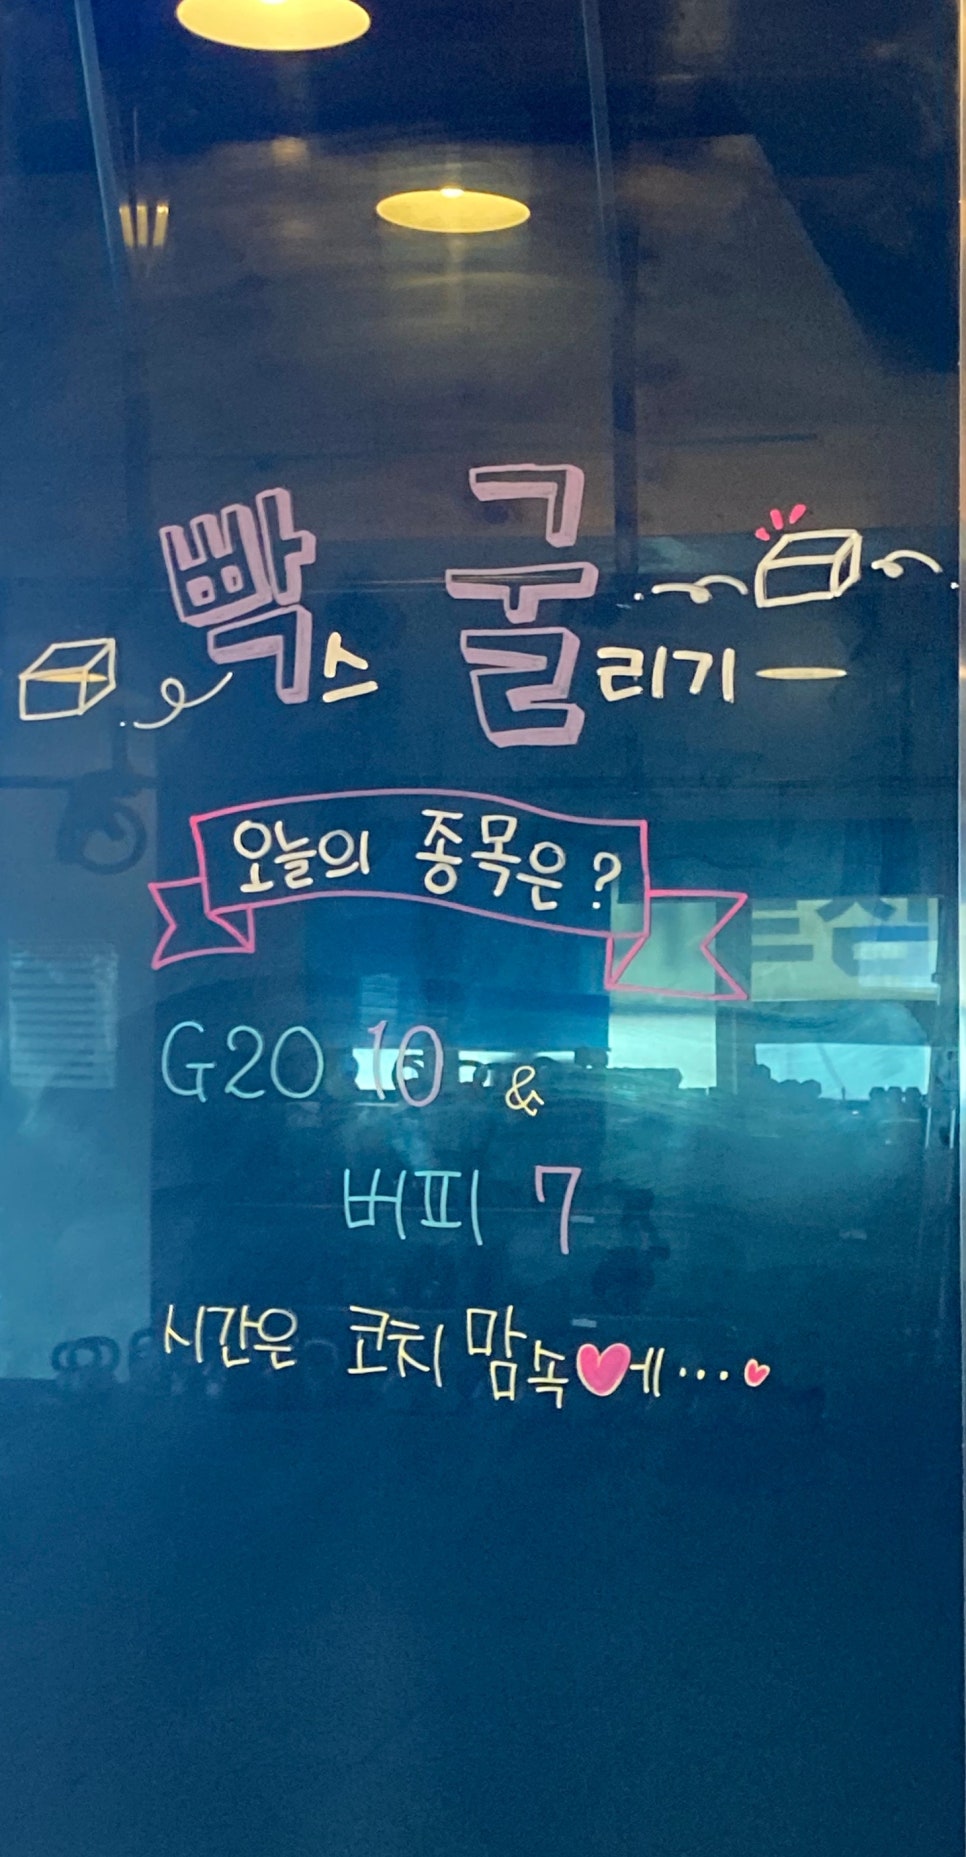 빡스 굴리기
오늘의 종목은?
G20 10 &
버피 7
시간은 코치 맘속에...